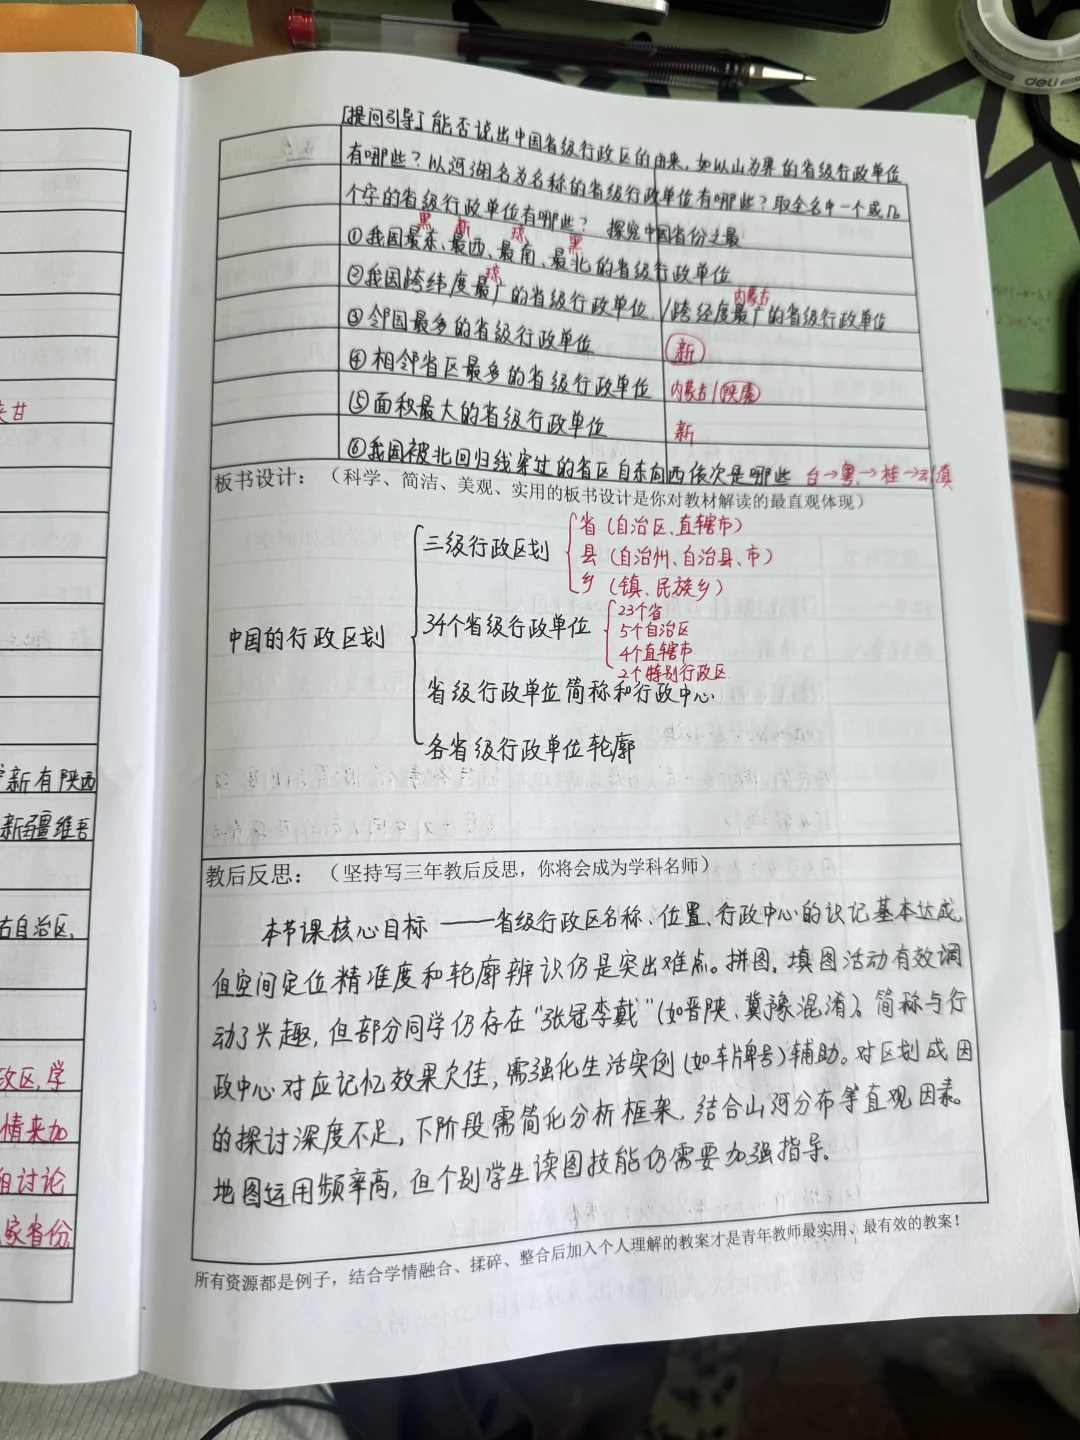 [提问引导]能否说出中国省级行政区的由来,如以山为界的省级行政单位
有哪些?以河湖名为名称的省级行政单位有哪些?取全名中一个或几
个字的省级行政单位有哪些? 探究中国省份之最
黑 新 琼 黑
①我国最东、最西、最南、最北的省级行政单位
琼 内蒙古
②我国跨纬度最广的省级行政单位/跨经度最广的省级行政单位
③邻国最多的省级行政单位 新
④相邻省区最多的省级行政单位 内蒙古/陕
⑤面积最大的省级行政单位 新
⑥我国被北回归线穿过的省区自东向西依次是哪些 台→粤→桂→云/滇
板书设计:(科学、简洁、美观、实用的板书设计是你对教材解读的最直观体现)
省(自治区、直辖市)
三级行政区划
县(自治州、自治县、市)
乡(镇、民族乡)
23个省
34个省级行政单位
5个自治区
中国的行政区划
4个直辖市
2个特别行政区
省级行政单位简称和行政中心
各省级行政单位轮廓
教后反思:(坚持写三年教后反思,你将会成为学科名师)
本节课核心目标——省级行政区名称、位置、行政中心的识记基本达成,
但空间定位精准度和轮廓辨识仍是突出难点。拼图、填图活动有效调
动了兴趣,但部分同学仍存在“张冠李戴”(如晋陕、冀豫混淆)。简称与行
政中心对应记忆效果欠佳,需强化生活实例(如车牌号)辅助。对区划成因
的探讨深度不足,下阶段需简化分析框架,结合山河分布等直观因素。
地图运用频率高,但个别学生读图技能仍需要加强指导。
所有资源都是例子,结合学情融合、揉碎、整合后加入个人理解的教案才是青年教师最实用、最有效的教案!
甘
新有陕西
新疆维吾
古自治区,
政区,学
情来加
组讨论
家省份
deli